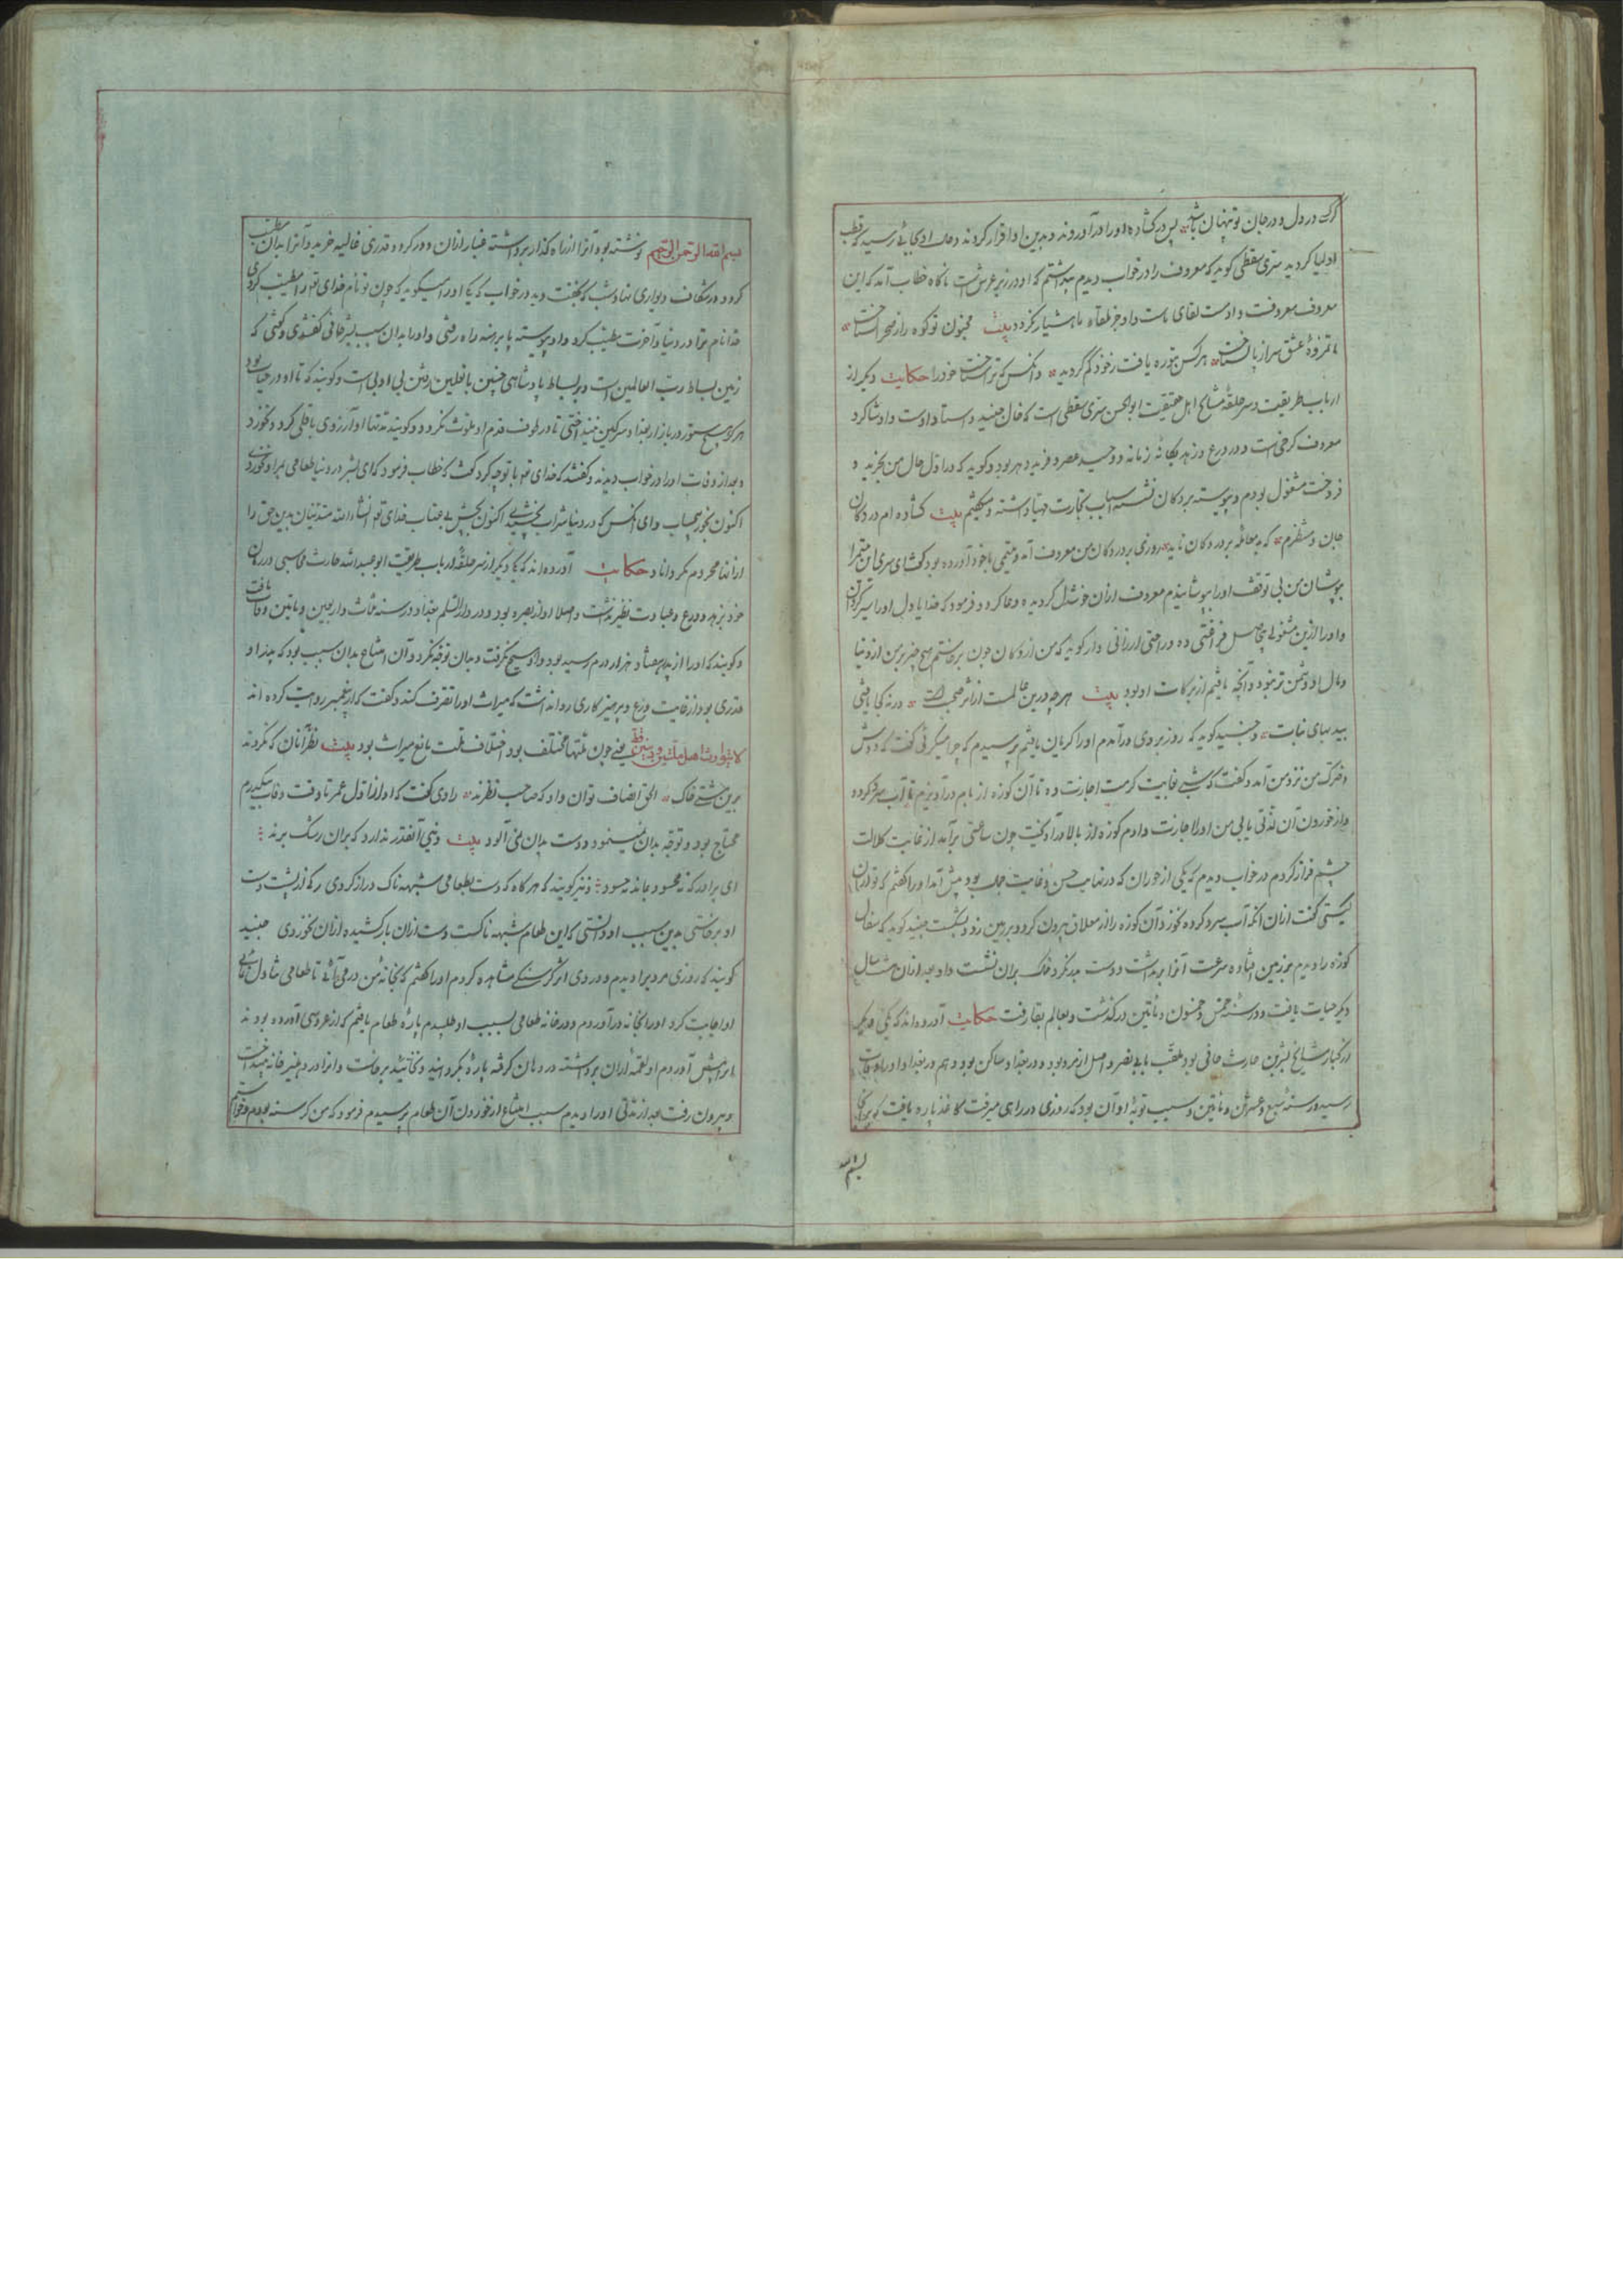 کرک در دل و در جان تو پنهان باشد پس در کشاده او را درآوردند و بدین ادا اقرار کردند و حال او بجائی رسید که قطب
اولیا کردید سری سقطی کوید که معروف را در خواب دیدم پنداشتم که او در زیر عرش است ناکاه خطاب آمد که این
معروف معروفست و او مست لقای ماست و او جز بلقاء ما هشیار نکردد بیت مجنون تو کوه را ز صحرا نشناخت
دیوانهٔ عشق تو سر از پا نشناخت هر کس بتو ره یافت ز خود کم کردید و آنکس که ترا شناخت خود را حکایت دیکر از
ارباب طریقت و سر حلقهٔ مشایخ اهل حقیقت ابوالحسن سری سقطی است که خال جنید و استاد اوست و او شاکرد
معروف کرخی است و در ورع و زهد یکانه زمانه و وحید عصر و فرید دهر بود و کوید که در اول حال من بخرید و
فروخت مشغول بودم و پیوسته بر دکان نشسته اسباب تجارت مهیا داشته و میکفتم بیت کشاده ام در دکان
جان و منتظرم که به معامله بر در دکان ناید روزی بر در دکان من معروف آمد و یتیمی با خود آورده بود کفت ای سری این یتیم را
بپوشان من بی توقف او را بپوشانیدم معروف ازان خوشدل کردیده دعا کرد و فرمود که خدایا دل او را سیر کردان
و او را ازین مشغولی بیحاصل فراغتی ده و راحتی ارزانی دار کوید که من از دکان چون برخاستم هیچ چیز بر من از دنیا
و مال او دشمن تر نبود و آنچه یافتم از برکات او بود بیت هر چه درین عالمست از اثر صحبت است ورنه کجا یافتی
بید بهای نبات و جنید کوید که روزی بروی درآمدم او را کریان یافتم پرسیدم که چرا میکریی کفت که دوش
دخترک من نزد من آمد و کفت که شبی بغایت کرمست اجازت ده تا آن کوزه از بام درآویزم تا آب سرد کرده
و از خوردن آن لذتی یابی من او را اجازت دادم کوزه از بالا درآویخت چون ساعتی برآمد از غایت کلالت
چشم فراز کردم در خواب دیدم که یکی از حوران که در نهایت حسن و غایت جمال بود پیش آمد او را کفتم که تو ازان
کیستی کفت ازان آنکه آب سرد کرده نخورد آن کوزه را از معلاق بیرون کرد و بر زمین زد و بشکست جنید کوید که سفال
کوزه را دیدم بر زمین افتاده سرعت آنرا برنداشت و دست بدو نکرد خاک بران نشست و او بعد ازان هشت سال
دیکر حیات یافت و در سنه خمس و خمسون و مأتین درکذشت و بعالم بقا رفت حکایت آورده اند که یکی دیکر
از کبار مشایخ بشر بن حارث حافی بود ملقب بابی نصر و اصل از مرو بود و در بغداد ساکن بود و هم در بغداد او را وفات
رسید در سنه سبع و عشرین و مأتین و سبب توبهٔ او آن بود که روزی در راهی میرفت کاغذ پاره یافت که بر آنجا
بسم الله
بسم الله الرحمن الرحیم نوشته بود آنرا از راه کذار برداشته غبار ازان دور کرد و قدری غالیه خرید و آنرا بدان مطیب
کرد و در شکاف دیواری نهاد شب که بخفت دید در خواب که یکی او را میکوید که چون تو نام خدای تع را مطیب کردی
خدا نام ترا در دنیا و آخرت مطیب کرد و او پیوسته پا برهنه راه رفتی و او را بدان سبب بشر حافی کفتندی و کفتی که
زمین بساط رب العالمین است و بر بساط پادشاهی چنین با نعلین رفتن بی ادبی است و کویند که تا او در حیات بود
هرکز هیچ ستور در بازار بغداد سرکین نینداختی تا در طوف قدم او ملوث نکردد و کویند مدتها او آرزوی باقلی کرد و نخورد
و بعد از وفات او را در خواب دیدند و کفتند که خدای تع با تو چه کرد کفت که خطاب فرمود که ای بشر در دنیا طعامی بمراد نخوردی
اکنون بخور بیحساب و ای آنکس که در دنیا شراب نچشیدی اکنون بچش بی عتاب خدای تع انشاءالله مندینان بدین حق را
از آنها محروم نکرداناد حکایت آورده اند که یکی دیکر از سر حلقهٔ ارباب طریقت ابو عبدالله حارث محاسبی در زمان
خود بزهد و ورع و عبادت نظیر نداشت و اصلا او از بصره بود و در دارالسلم بغداد در سنه ثلاث و اربعین و مأتین وفات یافت
و کویند که او را از پدر هفتاد هزار درم رسید بود و او هیچ نکرفت و بدان توجه نکرد و آن امتناع بدان سبب بود که پدر او
قدری بود از غایت ورع و پرهیزکاری روا نداشت که میراث او را تصرف کند و کفت که از پیغمبر روایت کرده اند
لا یتوارث اهل ملتین و بشین قط یعنی چون ملتها مختلف بود اختلاف ملت مانع میراث بود بیت نظر آنان که نکردند
برین مشتی خاک الحق انصاف توان داد که صاحب نظرند راوی کفت که او از اول عمر تا وقت وفات بیکدرم
محتاج بود و توجه بدان ننمود و دست بدان نمی آلود بیت دنیی آنقدر ندارد که بران رشک برند
ای برادر که نه محسود بماند نه حسود و نیز کویند که هر کاه که دست بطعامی شبهه ناک دراز کردی رکی از پشت دست
او برخاستی بدین سبب او دانستی که این طعام شبهه ناکست دست ازان بازکشیده ازان نخوردی جنید
کویند که روزی مرد پرا دیدم و در وی اثر کرسنکی مشاهده کردم او را کفتم که بخانهٔ من در می آئی تا طعامی تناول نمائی
او اجابت کرد او را بخانه درآوردم و در خانه طعامی بسبب او طلبیدم پارهٔ طعام یافتم که از عروسی آورده بودند
آنرا پیش آوردم او لقمهٔ ازان برداشته در دهان کرفته پارهٔ بکردانید و نخائید برخاست و آنرا در دهلیز خانه بینداخت
و بیرون رفت بعد از مدتی او را دیدم سبب امتناع از خوردن آن طعام پرسیدم فرمود که من کرسنه بودم و خواستم